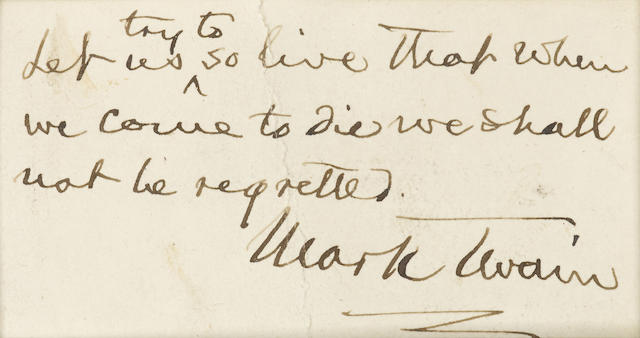 try to
Let us ^ so live that when
we come to die we shall
not be regretted.
Mark Twain